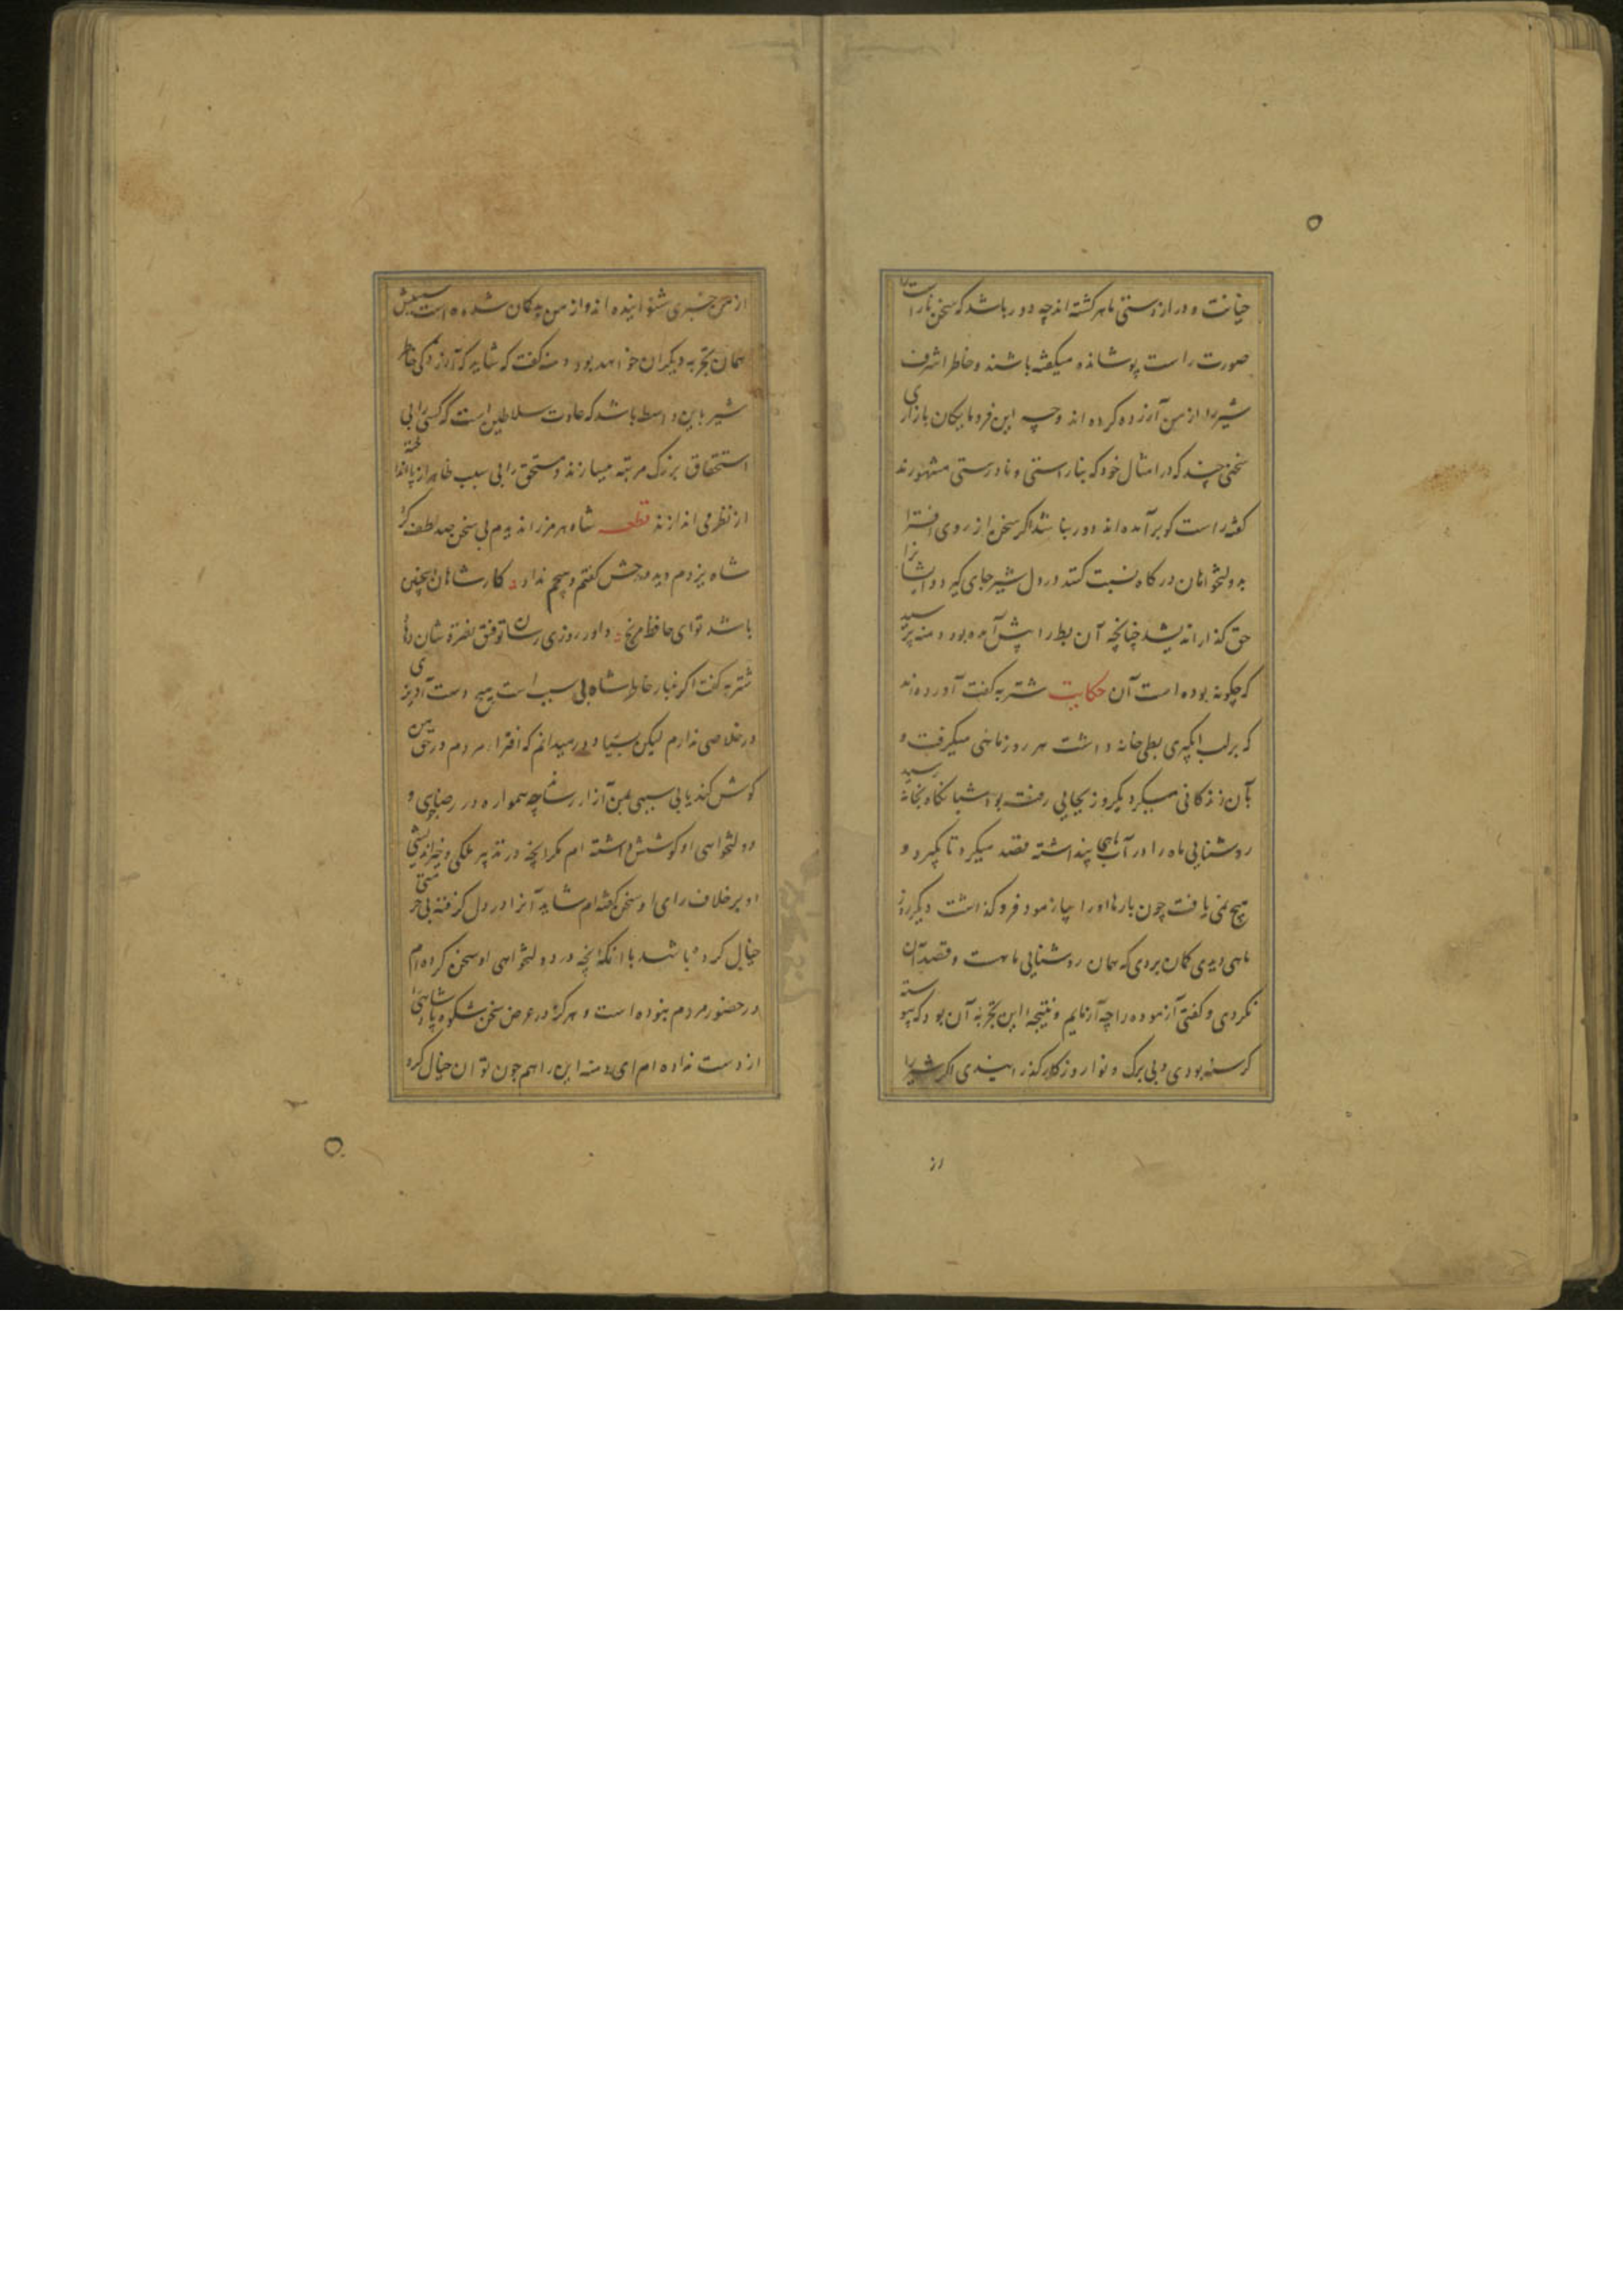 خیانت و دراز دستی ماهر کشته اند چه دور باشد که سخن ناراست را
صورت راست پوشانده میکفته باشند و خاطر اشرف
شیر را از من آزرده کرده اند و چه این فرومایکان بازاری
سخنی چند که در امثال خود که بناراستی و نادرستی مشهورند
کفته راست کو برآمده اند دور نباشد اکر سخن از روی افترا
بدولتخواهان درکاه نسبت کنند در دل شیر جای کیرد و ایشانرا
حق کذار اندیشد چنانچه آن بط را پیش آمده بود دمنه پرسید
که چکونه بوده است آن حکایت شتربه کفت آورده اند
که بر لب آبکیری بطی خانه داشت هر روز ماهی میکرفت و
بآن زندکانی میکرد یکروز بجایی رفته بود شبانکاه بخانه رسید
روشنایی ماه را در آب ماهی پنداشته قصد میکرد تا بکیرد و
هیچ نمی یافت چون بارها او را بیازمود فروکذاشت دیکر روز
ماهی دیدی کمان بردی که همان روشنایی ماهست و قصد آن
نکردی و کفتی آزموده را چه آزمایم و نتیجه این تجربه آن بود که پیوسته
کرسنه بودی و بی برک و نوا روزکار کذرانیدی اکر شیر را
از
از من خبری شنوانیده اند و از من بدکمان شده است سببش
همان تجربه دیکران خواهد بود دمنه کفت که شاید که آزردکی خاطر
شیر باین واسطه باشد که عادت سلاطین است که کسی را بی
استحقاق بزرک مرتبه میسازند و مستحق را بی سبب ظاهر از پا انداخته
از نظر می اندازند قطعه شاه هرمزم ندید و بی سخن صد لطف کرد
شاه یزدم دید و مدحش کفتم و هیچم نداد کار شاهان اینچنین
باشد تو ای حافظ مرنج داور روزی رسان توفیق نصرت شان دهاد
شتربه کفت اکر غبار خاطر شاه بی سبب است هیچ دست آویزی
در خلاصی ندارم لیکن میدانم که افترا مردم در حق من
کوش کند یا بی سببی بمن آزار رساند چه همواره در رضاجویی و
دولتخواهی او کوشش داشته ام مکر آنچه در تدبیر ملکی و خیراندیشی
او بر خلاف رای او سخن کفته ام شاید آنرا در دل کرفته بی حرمتی
خیال کرده باشد با آنکه آنچه در دولتخواهی او سخن کرده ام
در حضور مردم نبوده است و هرکز در عرض سخن شکوه پادشاهی را
از دست نداده ام ای دمنه این را هم چون توان خیال کرد